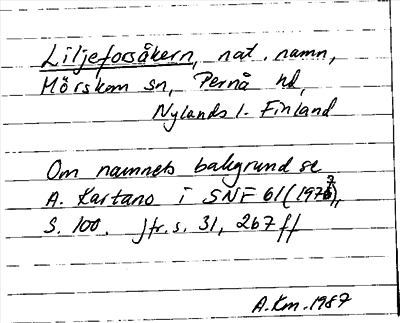 Liljeforsåkern, nat. namn,
Mörskom sn, Pernå hd,
Nylands l. Finland
Om namnets bakgrund se
A. Kartano i SNF 61 (1973),
S. 100. Jfr. s. 31, 267 ff
A.Km. 1987